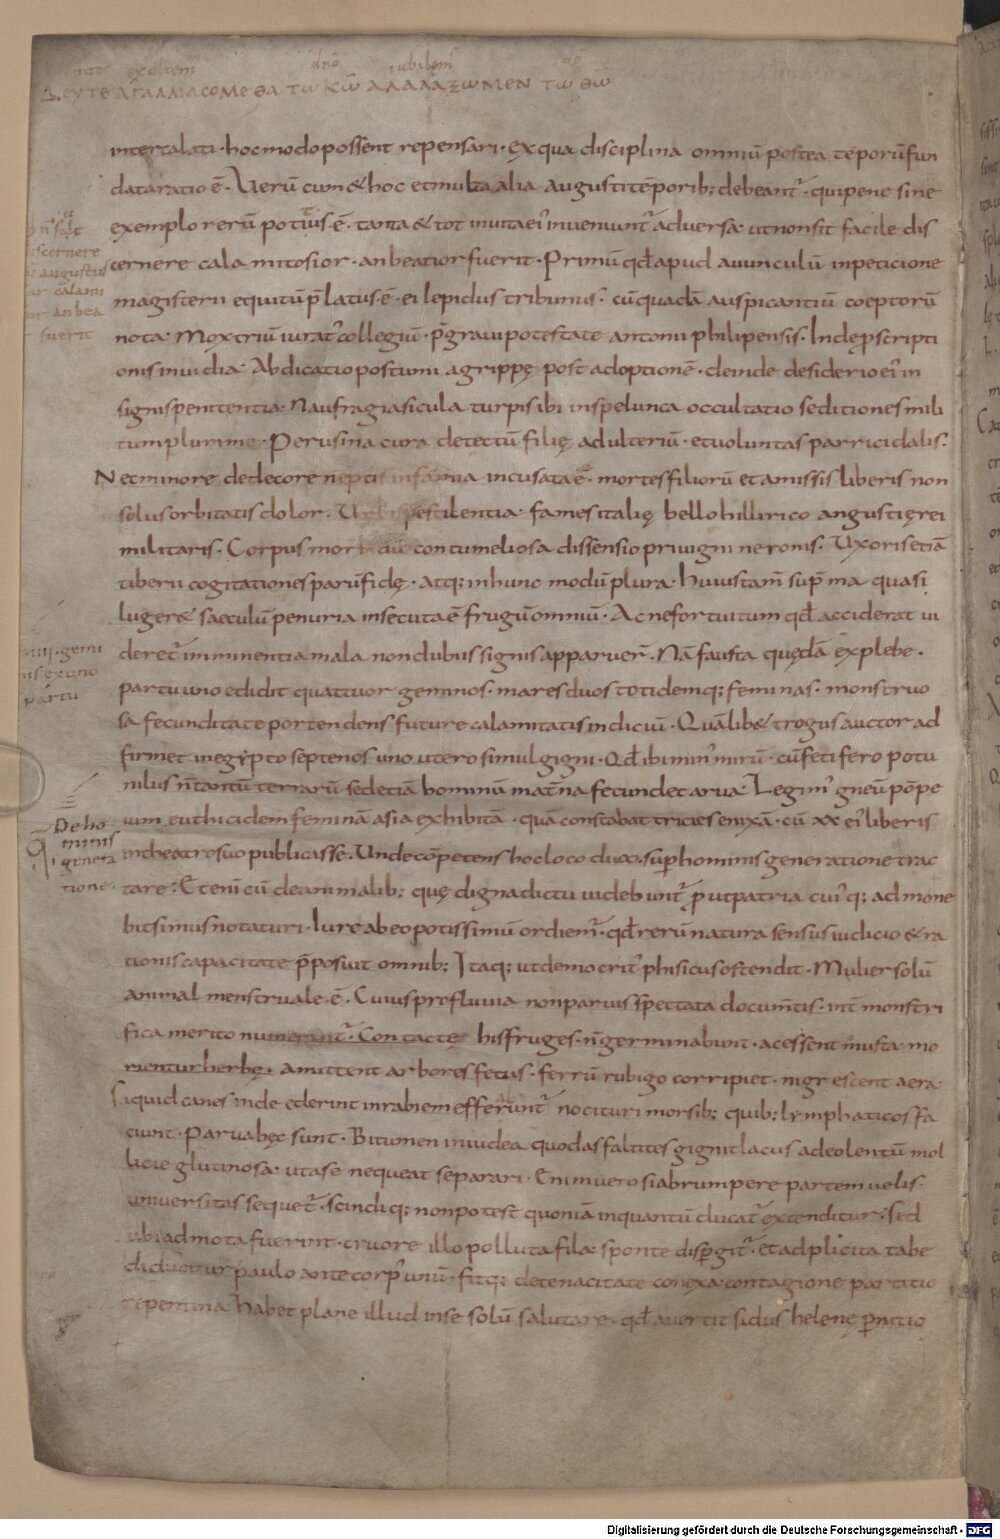 uenite exultem' dño iubilem' dō
ΔEYTE AΓAΛΛIACOMEΘA TW KW̄ AΛAΛAΞWMEN TW ΘW̄
intercalati · hoc modo possent repensari · ex qua disciplina omniū postea tēporū fun
data ratio ē · Uerū cum & hoc et multa alia augusti tēporib; debeant̃ · qui pene sine
exemplo rerū potitus ē · tanta & tot in uita ei' inueniunt̃ aduersa · ut non sit facile dis
cernere calamitosior · an beatior fuerit · Primū qđ apud auunculū in peticione
magisterii equitū p̃latus ē · ei lepidus tribunus · cū quadā auspicantiū coeptorū
nota · Mox triū uirat' collegiū · p̃graui potestate antonii philipensis · Inde p̱scripti
onis inuidia · Abdicatio postumi agrippę post adoptionē · deinde desiderio ei' in
signis penitentia · Naufragia sicula turpis ibi in spelunca occultatio seditiones mili
tum plurime · Perusina cura detectū filię adulteriū · et uoluntas parricidalis ·
Nec minore dedecore neptis infamia incusata ē · mortes filiorū et amissis liberis non
solus orbitatis dolor · Urbis pestilentia · fames italię bello hillirico angustię rei
militaris · Corpus morbidū contumeliosa dissensio priuigni neronis · Uxoris etiā
tiberii cogitationes parū fidę · atq; in hunc modū plura · Huius tam̃ sup̃ma quasi
luger& saeculū penuria insecuta ē frugū omniū · Ac ne fortuitum qđ acciderat ui
deret̃ imminentia mala non dubiis signis apparuer̃ · Nā fausta quędā ex plebe ·
partu uno edidit quattuor geminos · mares duos totidemq; feminas · monstruo
sa fecunditate portendens future calamitatis indiciū · Quālib& trogus auctor ad
firmet in egypto septenos uno utero simul gigni · Qđ ibi min' mirū · cū fetifero potu
nilus ñ tantū terrarū sed etiā hominū mat̃na fecundet arua · Legim' gneū pōpe
ium euthicidem feminā asia exhibitā · quā constabat tricies enixā · cū xx ei' liberis
in theatro suo publicasse · Unde cōpetens hoc loco duxi · sup̱ hominis generatione trac
tare · Etenī cū de animalib; quę digna dictu uidebunt̃ p̱ ut patria cui'q; admone
bit simus notaturi · Iure ab eo potissimū ordiem̃ · qđ rerū natura sensus iudicio & ra
tionis capacitate p̃posuit omnib; Itaq; ut democrit' phisicus ostendit · Mulier solū
animal menstruale ē · Cuius profluuia non paruis spectata docum̃tis · int̃ monstri
fica merito numerant̃ · Contactę his fruges · ñ germinabunt · acessent musta · mo
rientur herbę · amittent arbores fetus · ferrū rubigo corripiet · nigrescent aera ·
Siquid canes inde ederint in rabiem efferunt̃ nocituri morsib; quib; lymphaticos fa
ciunt · Parua hęc sunt · Bitumen in iudea quod asfaltites gignit lacus adeo lentū mol
licie glutinosa · ut a se nequeat separari · Enimuero si abrumpere partem uelis ·
uniuersitas sequet̃ · scindiq; non potest quoniā in quantū ducat̃ extenditur · sed
ubi admota fuerint · cruore illo polluta fila · sponte disp̱git̃ · et adplicita tabe
diducitur paulo ante corp' unū · fitq; de tenacitate conexa contagione partitio
repentina · Habet plane illud in se solū salutare · qđ auertit sidus helenę p̱nitio
cernere
augustus
calami
an bea
fuerit
· iiij · gemi
nis ex uno
partu
De ho
minis
genera
tione ·
Digitalisierung gefördert durch die Deutsche Forschungsgemeinschaft - DFG